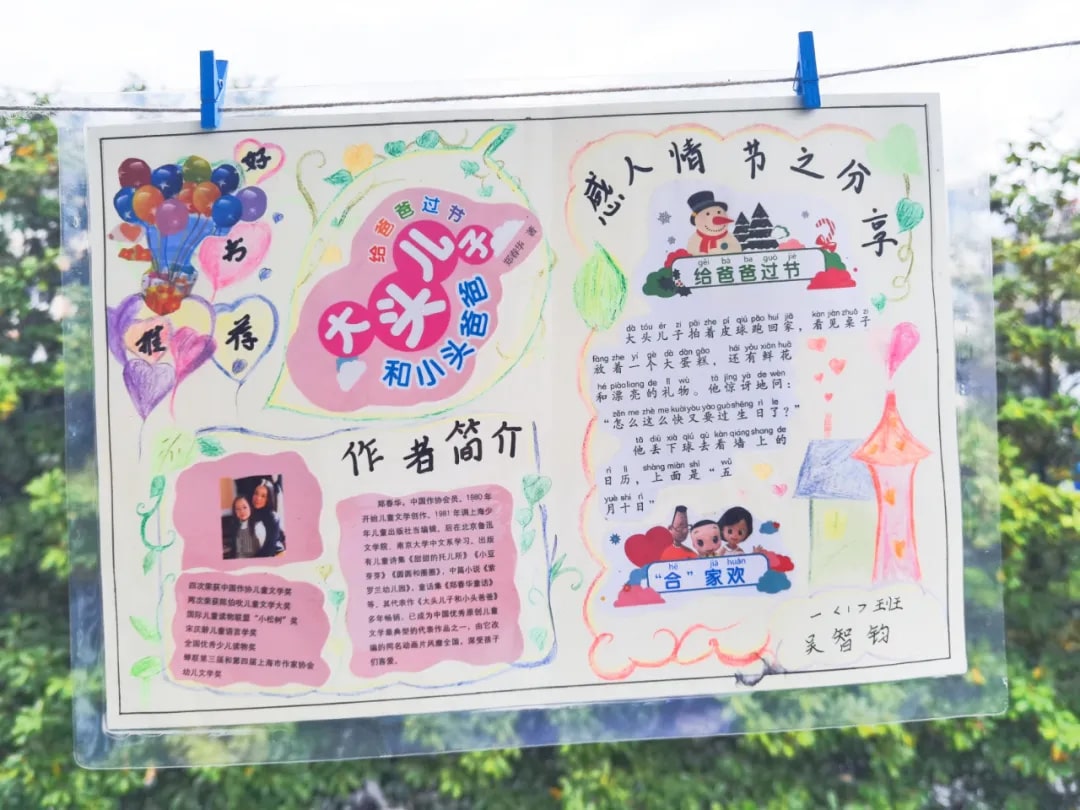 好
书
推
荐
给爸爸过节
大头儿子
郑春华 著
和小头爸爸
作者简介
四次荣获中国作协儿童文学奖
两次荣获陈伯吹儿童文学大奖
国际儿童读物联盟“小松树”奖
宋庆龄儿童语言学奖
全国优秀少儿读物奖
蝉联第三届和第四届上海市作家协会
幼儿文学奖
郑春华，中国作协会员。1980年
开始儿童文学创作。1981年调上海少
年儿童出版社当编辑。后在北京鲁迅
文学院、南京大学中文系学习。出版
有儿童诗集《甜甜的托儿所》《小豆
芽芽》《圆圆和圈圈》，中篇小说《紫
罗兰幼儿园》、童话集《郑春华童话》
等，其代表作《大头儿子和小头爸爸》
多年畅销，已成为中国优秀原创儿童
文学最典型的代表作品之一，由它改
编的同名动画片风靡全国，深受孩子
们喜爱。
感人情节之分享
gěi bà ba guò jié
给爸爸过节
dà tóu ér zi pāi zhe pí qiú pǎo huí jiā kàn jiàn zhuō zi
大头儿子拍着皮球跑回家，看见桌子
fàng zhe yí gè dà dàn gāo hái yǒu xiān huā
放着一个大蛋糕，还有鲜花
hé piào liang de lǐ wù tā jīng yà de wèn
和漂亮的礼物。他惊讶地问：
zěn me zhè me kuài yòu yào guò shēng rì le
“怎么这么快又要过生日了？”
tā diū xià qiú qù kàn qiáng shang de
他丢下球去看墙上的
rì lì shàng miàn shì wǔ
日历，上面是“五
yuè shí rì
月十日”
hé jiā huān
“合”家欢
一〈1〉班
吴智钧